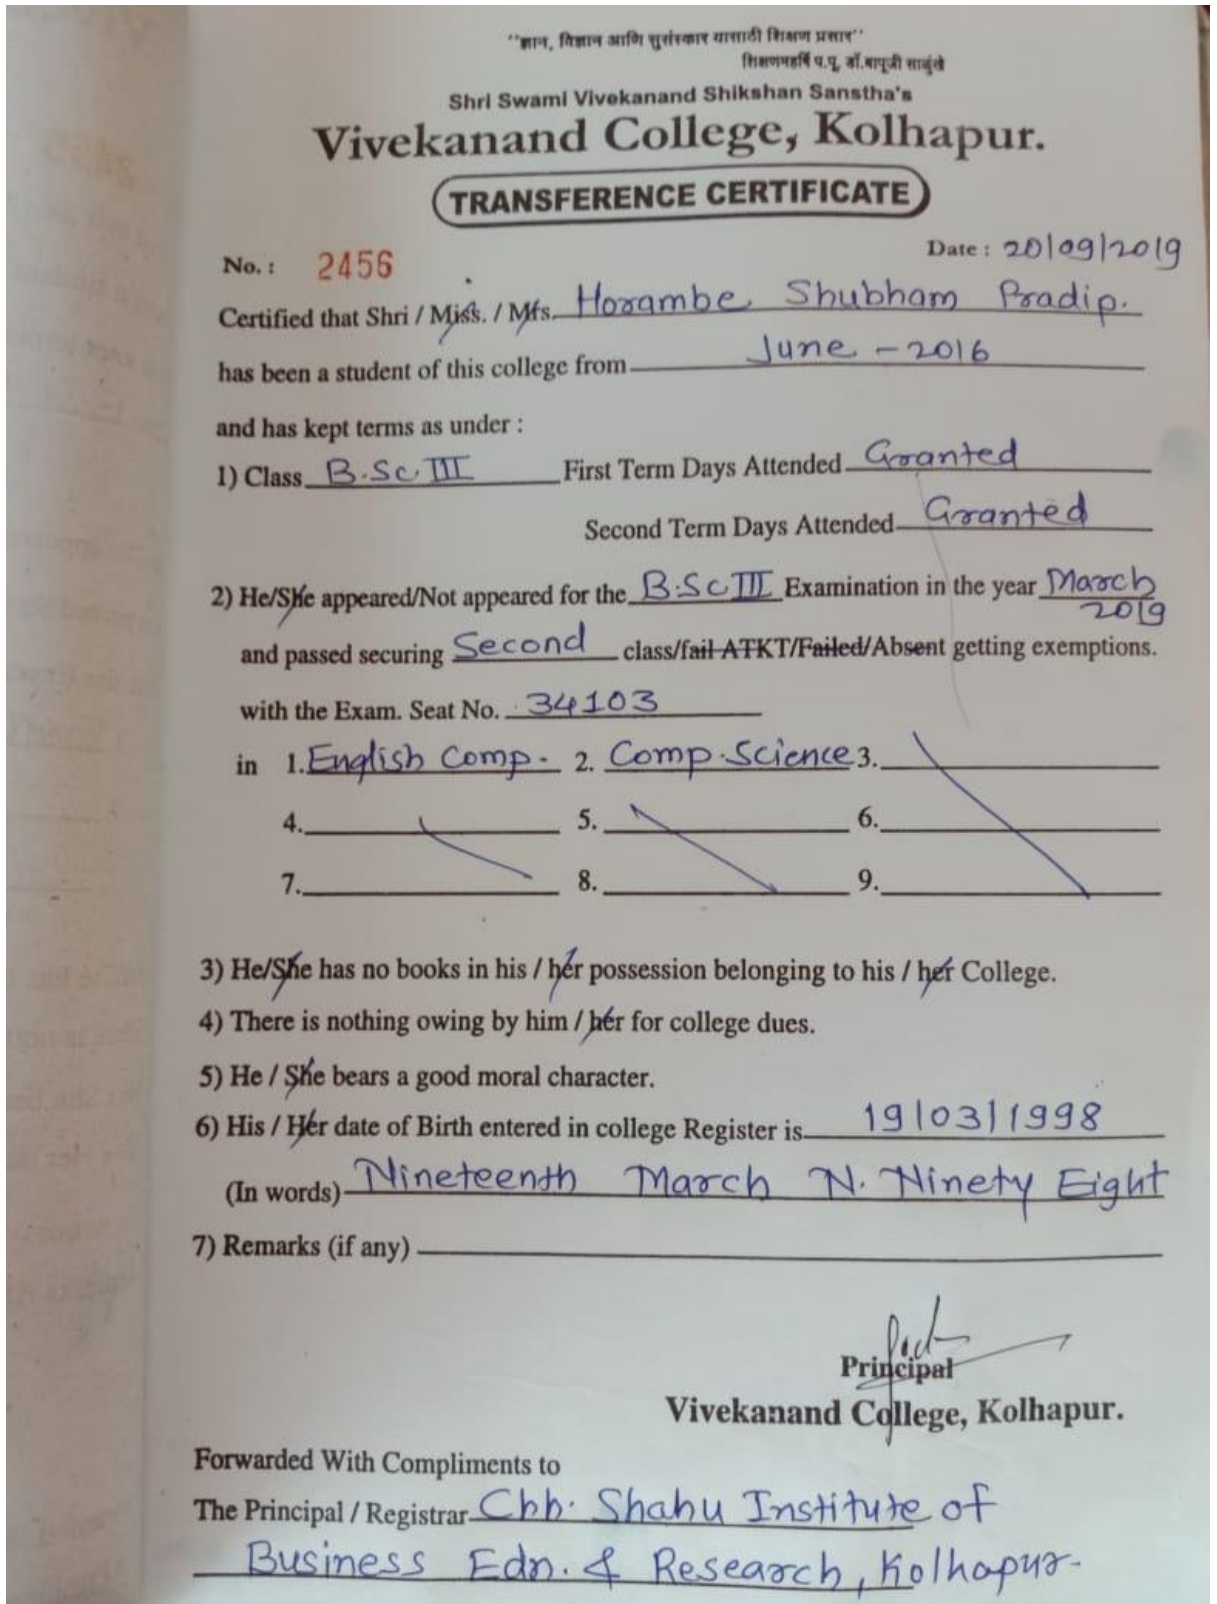 "ज्ञान, विज्ञान आणि सुसंस्कार यासाठी शिक्षण प्रसार"
शिक्षणमहर्षि प.पू. डॉ.बापूजी साळुंखे
Shri Swami Vivekanand Shikshan Sanstha's
Vivekanand College, Kolhapur.
TRANSFERENCE CERTIFICATE
No. : 2456 Date : 20/09/2019
Certified that Shri / Miss. / Mrs. Horambe Shubham Pradip.
has been a student of this college from June - 2016
and has kept terms as under :
1) Class B.Sc.III First Term Days Attended Granted
Second Term Days Attended Granted
2) He/She appeared/Not appeared for the B.Sc III Examination in the year March 2019
and passed securing Second class/fail ATKT/Failed/Absent getting exemptions.
with the Exam. Seat No. 34103
in 1. English Comp. 2. Comp. Science 3.
4. 5. 6.
7. 8. 9.
3) He/She has no books in his / her possession belonging to his / her College.
4) There is nothing owing by him / her for college dues.
5) He / She bears a good moral character.
6) His / Her date of Birth entered in college Register is 19/03/1998
(In words) Nineteenth March N. Ninety Eight
7) Remarks (if any)
Principal
Vivekanand College, Kolhapur.
Forwarded With Compliments to
The Principal / Registrar Chh. Shahu Institute of
Business Edn. & Research, Kolhapur-